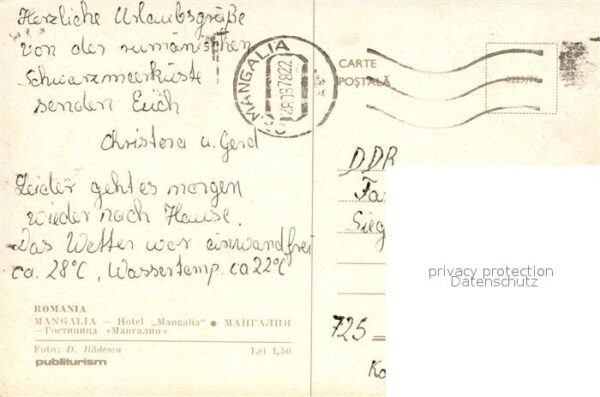 Herzliche Urlaubsgrüße
von der rumänischen
Schwarzmeerküste
senden Euch
Christora u. Gerd
Leider geht es morgen
wieder nach Hause.
Das Wetter war einwandfrei
ca. 28°C, Wassertemp. ca 22°C
ROMANIA
MANGALIA — Hotel „Mangalia" ● МАНГАЛИЯ
—Гостиница «Мангалия»
Foto: D. Bădescu
Lei 1,50
publiturism
MANGALIA
CARTE
POȘTALĂ
DDR
Fa
Sieg
725
Ko
privacy protection
Datenschutz